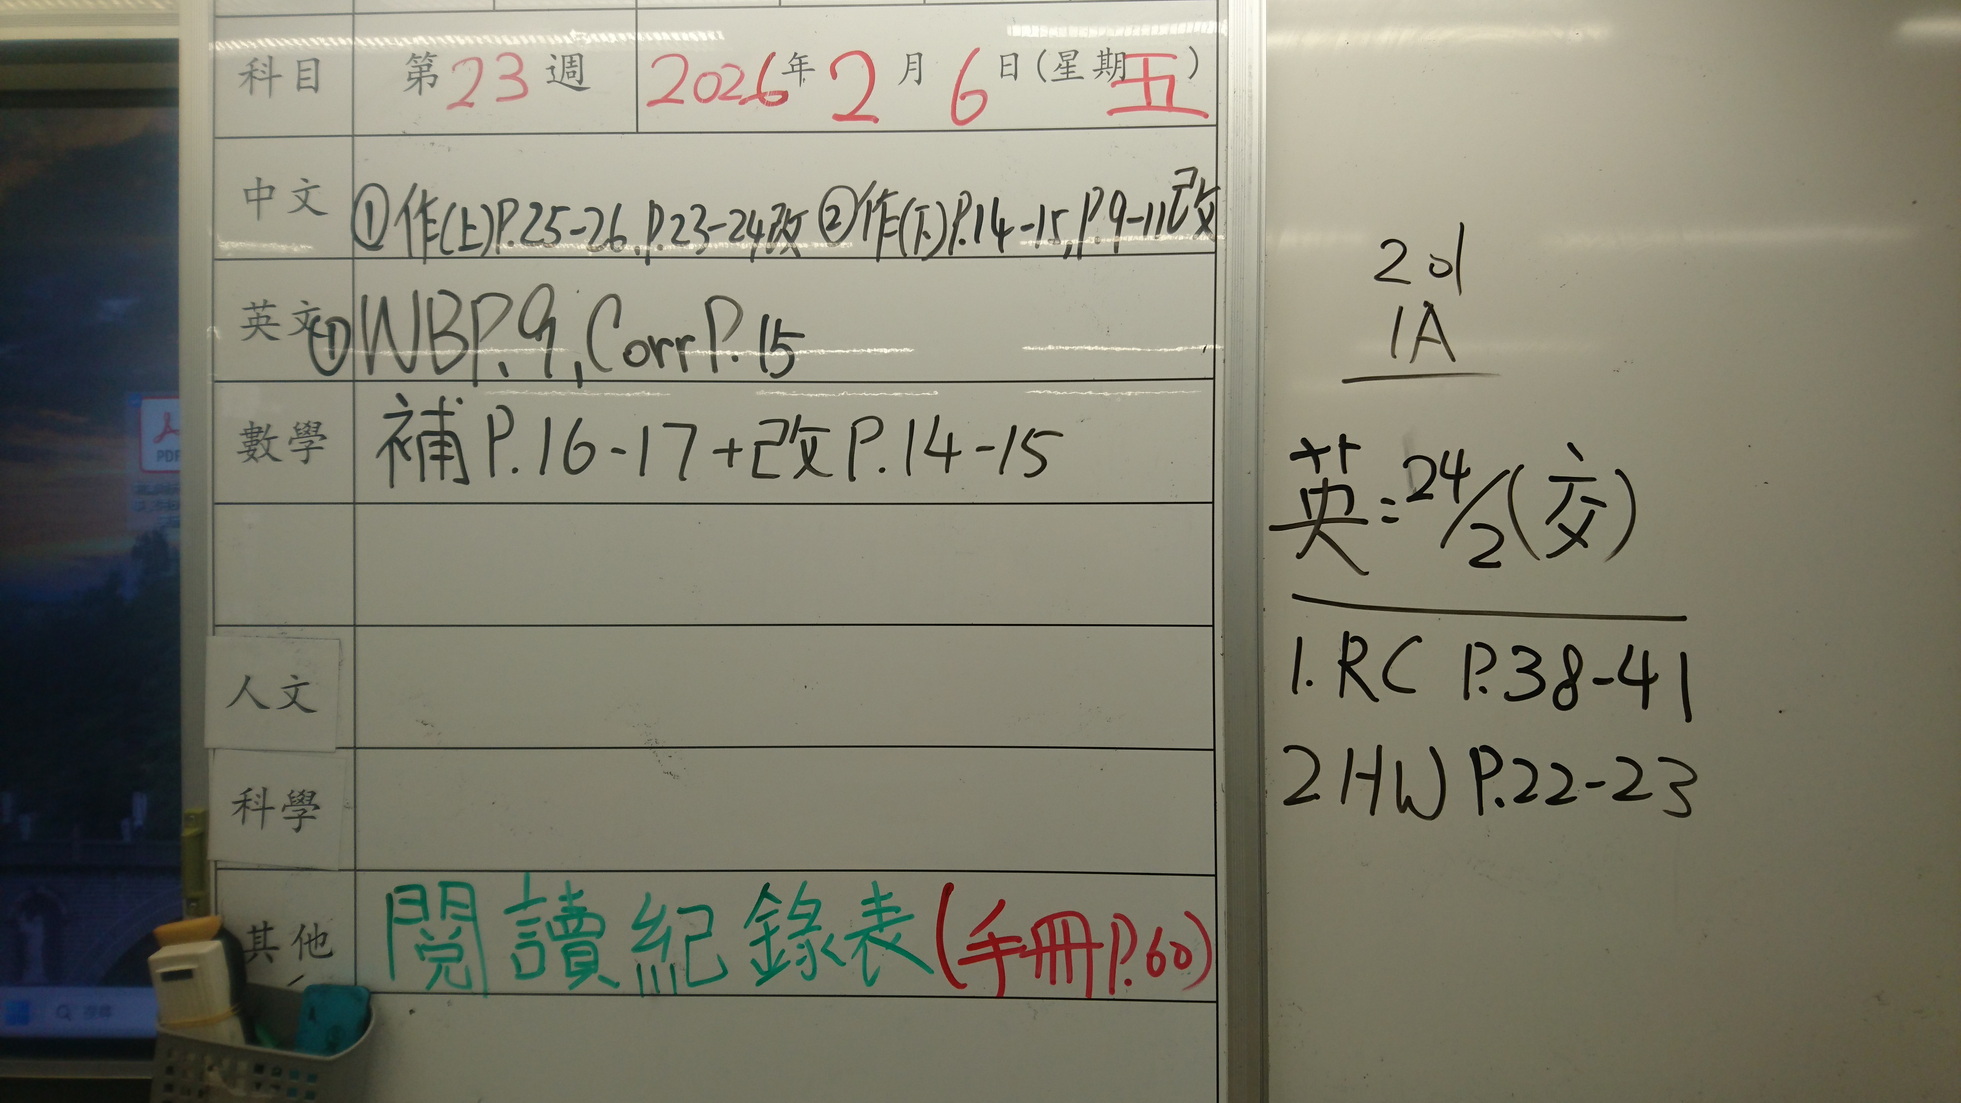 科目 第23週 2026年2月6日(星期五)
中文 ①作(上)P.25-26,P.23-24改 ②作(下)P.14-15,P.9-11改
英文 ①WBP.9,Corr P.15
數學 補P.16-17+改P.14-15
人文
科學
其他 閱讀紀錄表(手冊P.60)
201
1A
英:24/2(交)
1.RC P.38-41
2.HW P.22-23
PDF
搜尋